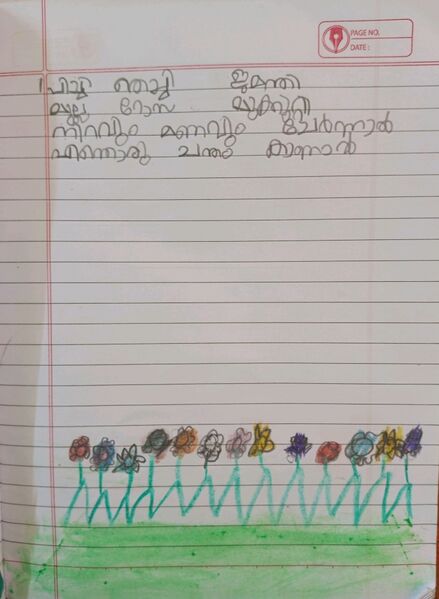 PAGE NO.
DATE:
1 പിച്ചി തെച്ചി ജമന്തി
മുല്ല റോസ മുക്കുറ്റി
നിറവും മണവും ചേർന്നാൽ
എന്തൊരു ചന്തം കാണാൻ